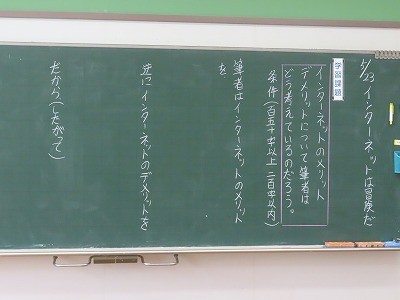 5/23 インターネットは冒険だ
学習課題
インターネットのメリット
デメリットについて筆者は
どう考えているのだろう。
条件(百五十字以上 二百字以内)
筆者はインターネットのメリット
を
逆にインターネットのデメリットを
だから(したがって)